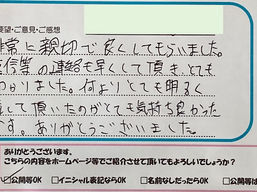 要望・ご意見・ご感想
常に親切で良くしてもらいました。
信等の連絡も早くして頂きとても
かりました。何よりとても明るく
して頂いたのがとても気持ち良かった
です。ありがとうございました。
ありがとうございます。
こちらの内容をホームページ等でご紹介させて頂いてもよろしいでしょうか？
公開等OK □イニシャル表記ならOK □名前なしだったらOK □公開等